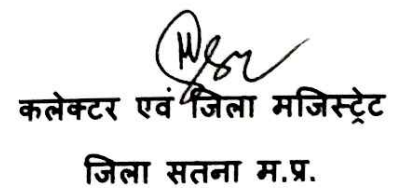 कलेक्टर एवं जिला मजिस्ट्रेट
जिला सतना म.प्र.